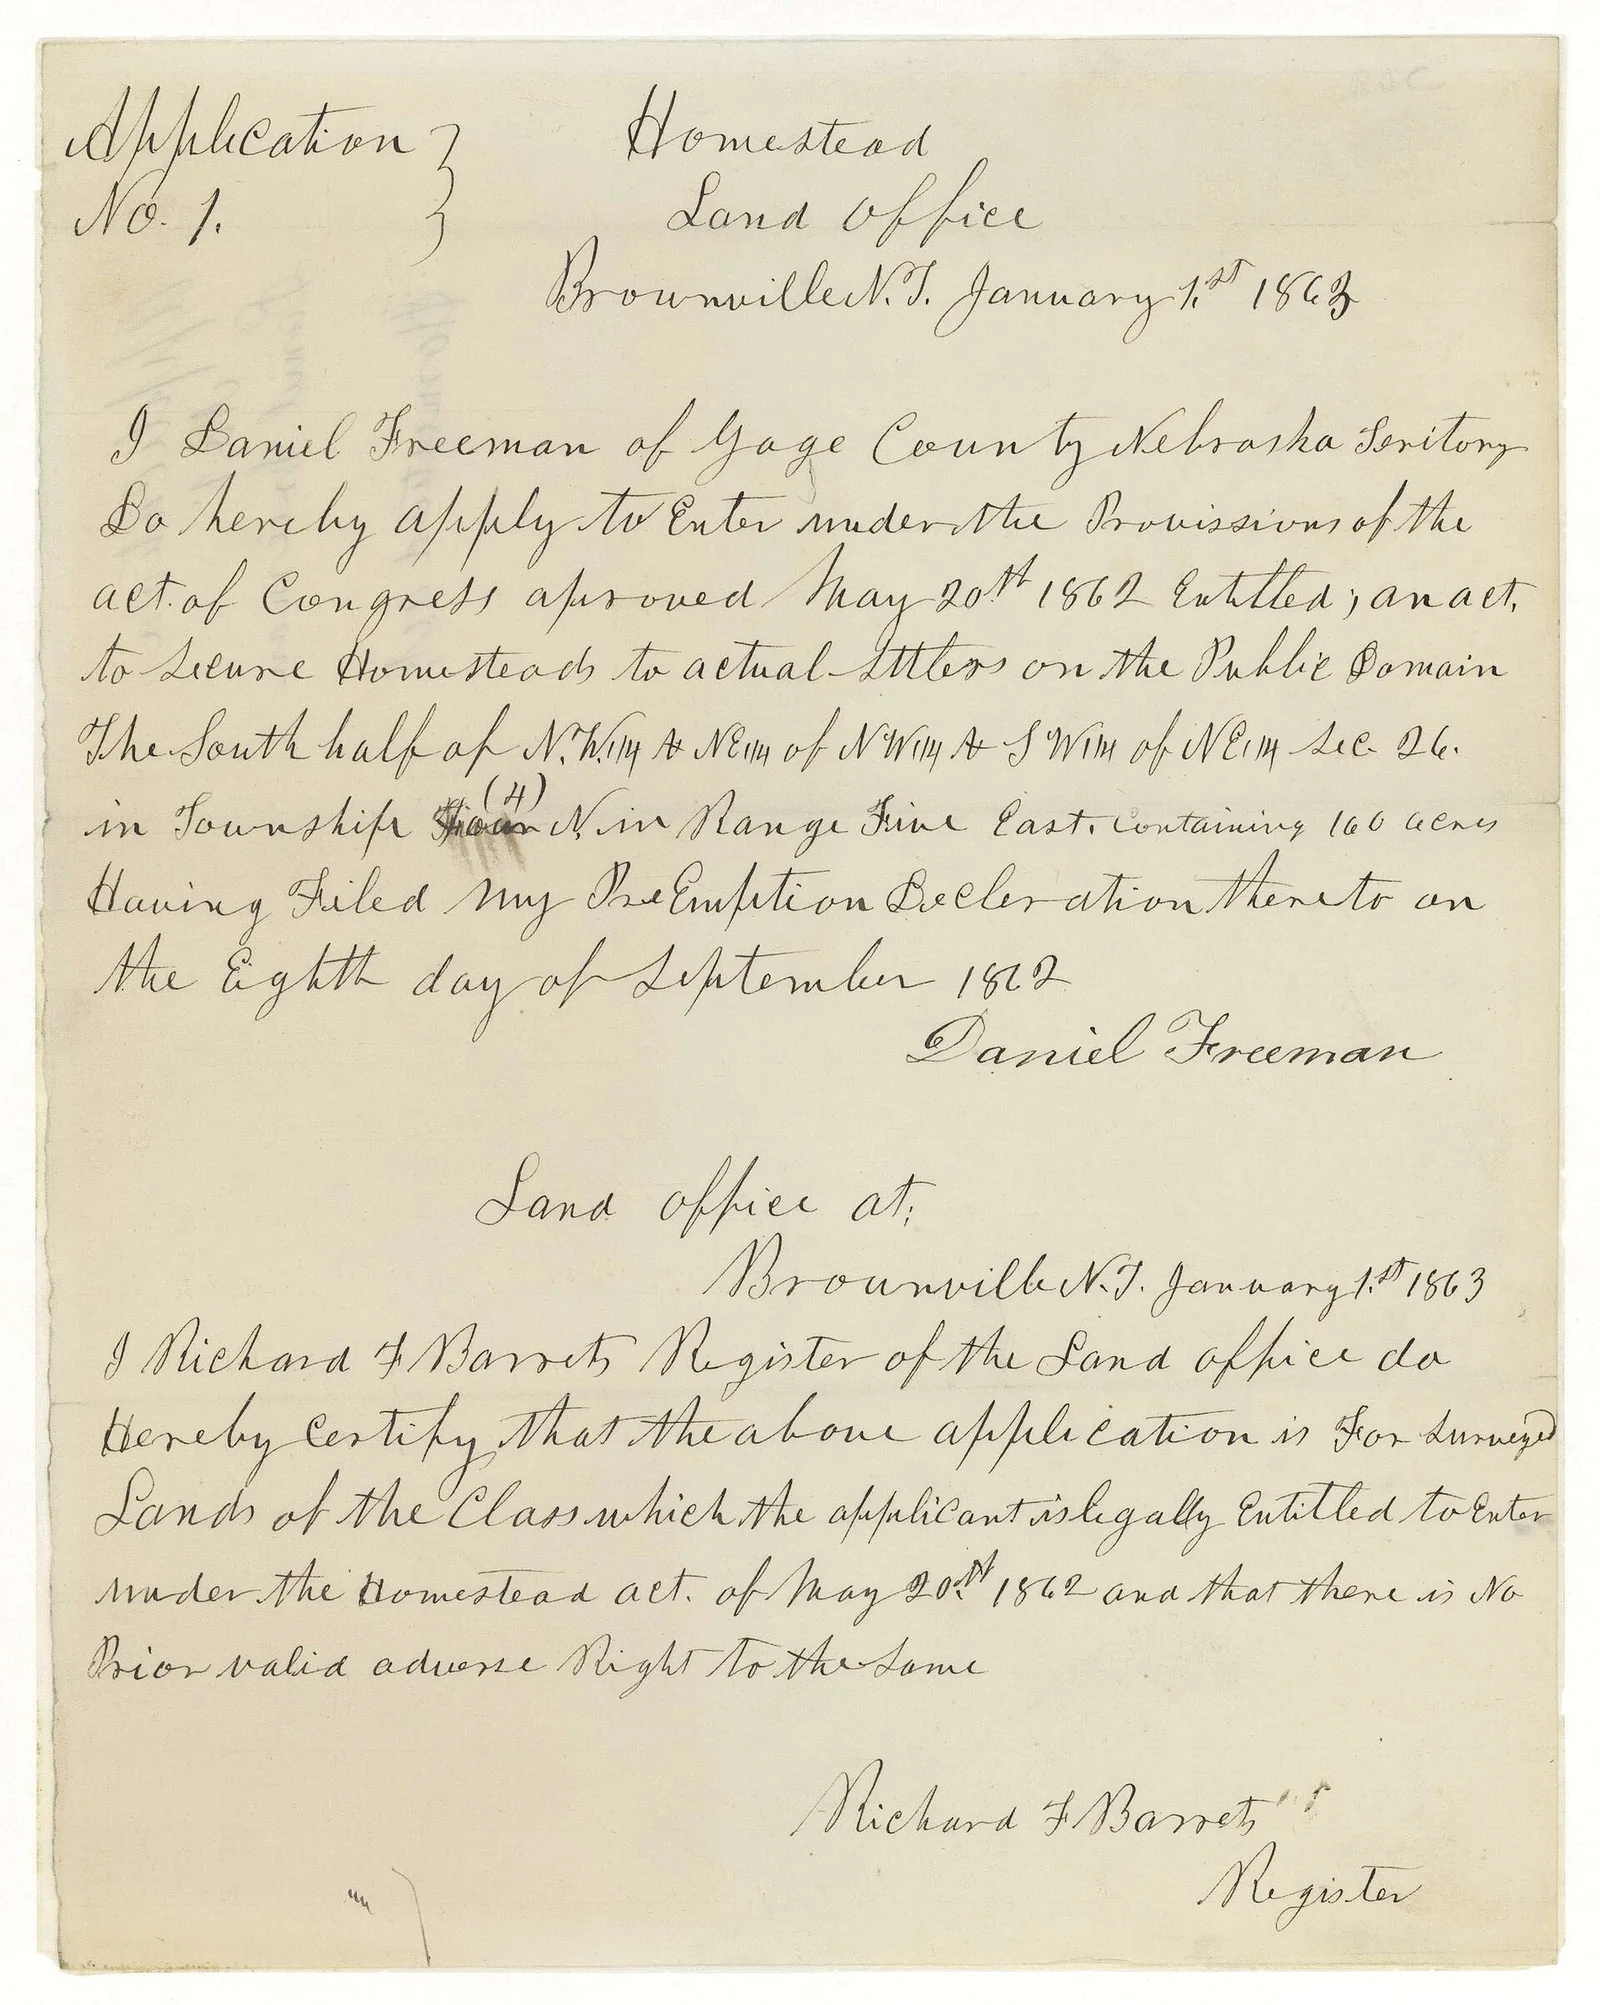 Application
No. 1.
Homestead
Land Office
Brownville N.T. January 1.st 1863
I Daniel Freeman of Gage County Nebraska Teritory
Do hereby apply to Enter under the Provissions of the
act. of Congress aproved May 20th 1862 Entitled; an act,
to Secure Homesteads to actual Settlers on the Public Domain
The South half of N.W.1/4 & NE1/4 of NW1/4 & SW1/4 of NE1/4 Sec. 26.
in Township (4) N. in Range Five East. containing 160 acres
Having Filed my PreEmption Decleration thereto on
the Eighth day of September 1862
Daniel Freeman
Land office at;
Brownville N.T. January 1.st 1863
I Richard F Barrets Register of the Land office do
Hereby certify, that the above application is For Surveyed
Lands of the Class which the applicant is legally Entitled to Enter
under the Homestead act. of May 20.th 1862 and that there is No
Prior valid adverse Right to the Same
Richard F Barrets
Register